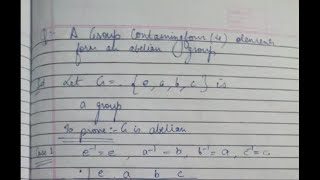 Q:- A Group Containing four (4) element
form an abelian group.
Sol Let G = { e, a, b, c } is
a group
To prove:- G is abelian
Case 1 e⁻¹ = e, a⁻¹ = b, b⁻¹ = a, c⁻¹ = c
· | e a b c